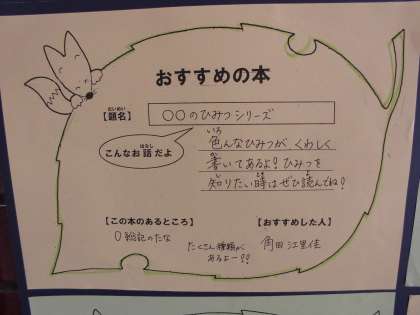 おすすめの本
だいめい
【題名】 〇〇のひみつシリーズ
はなし
こんなお話だよ
いろ
色んなひみつが、くわしく
か
書いてあるよ!ひみつを
し とき よ
知りたい時はぜひ読んでね!
【この本のあるところ】
0総記のたな
たくさん種類が
あるよー!!
【おすすめした人】
角田江里佳